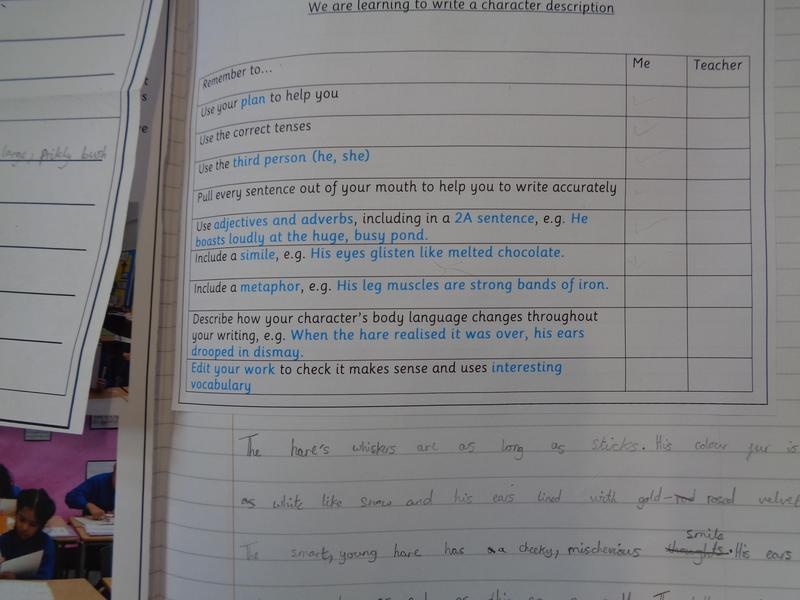 We are learning to write a character description
Remember to... Me Teacher
Use your plan to help you
Use the correct tenses
Use the third person (he, she)
Pull every sentence out of your mouth to help you to write accurately
Use adjectives and adverbs, including in a 2A sentence, e.g. He
boasts loudly at the huge, busy pond.
Include a simile, e.g. His eyes glisten like melted chocolate.
Include a metaphor, e.g. His leg muscles are strong bands of iron.
Describe how your character's body language changes throughout
your writing, e.g. When the hare realised it was over, his ears
drooped in dismay.
Edit your work to check it makes sense and uses interesting
vocabulary
large, prikly bush
The hare's whiskers are as long as sticks. His colour fur is
as white like snow and his ears lined with gold-rod rosed velvet
smile
The smart, young hare has a cheeky, mischevious thoughts. His ears